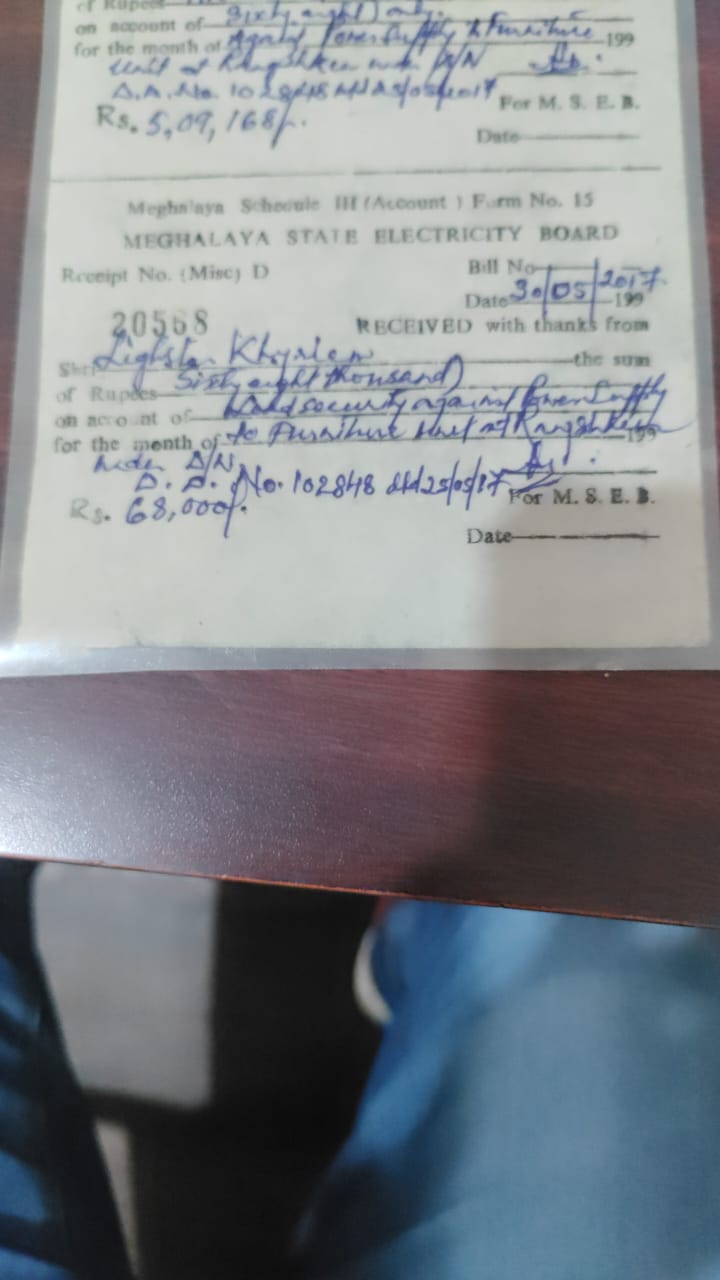 of Rupees Sixty eight) only.
on account of Against Power Supply to Furniture
for the month of 199
Unit at Rangshken under D/N
D.A. No. 102848 dtd 25/05/2017
For M. S. E. B.
Rs. 5,09,168/-.
Date
Meghalaya Schedule III (Account) Form No. 15
MEGHALAYA STATE ELECTRICITY BOARD
Receipt No. (Misc) D
Bill No
Date 30/05/2017 199
20568
RECEIVED with thanks from
Shri Khyriem the sum
of Rupees Sixty eight thousand)
on account of Load security against Power Supply
for the month of to Furniture Unit at Rangshken 199
Under D/N
D. A. No. 102848 dtd 25/05/17
For M. S. E. B.
Rs. 68,000/-.
Date